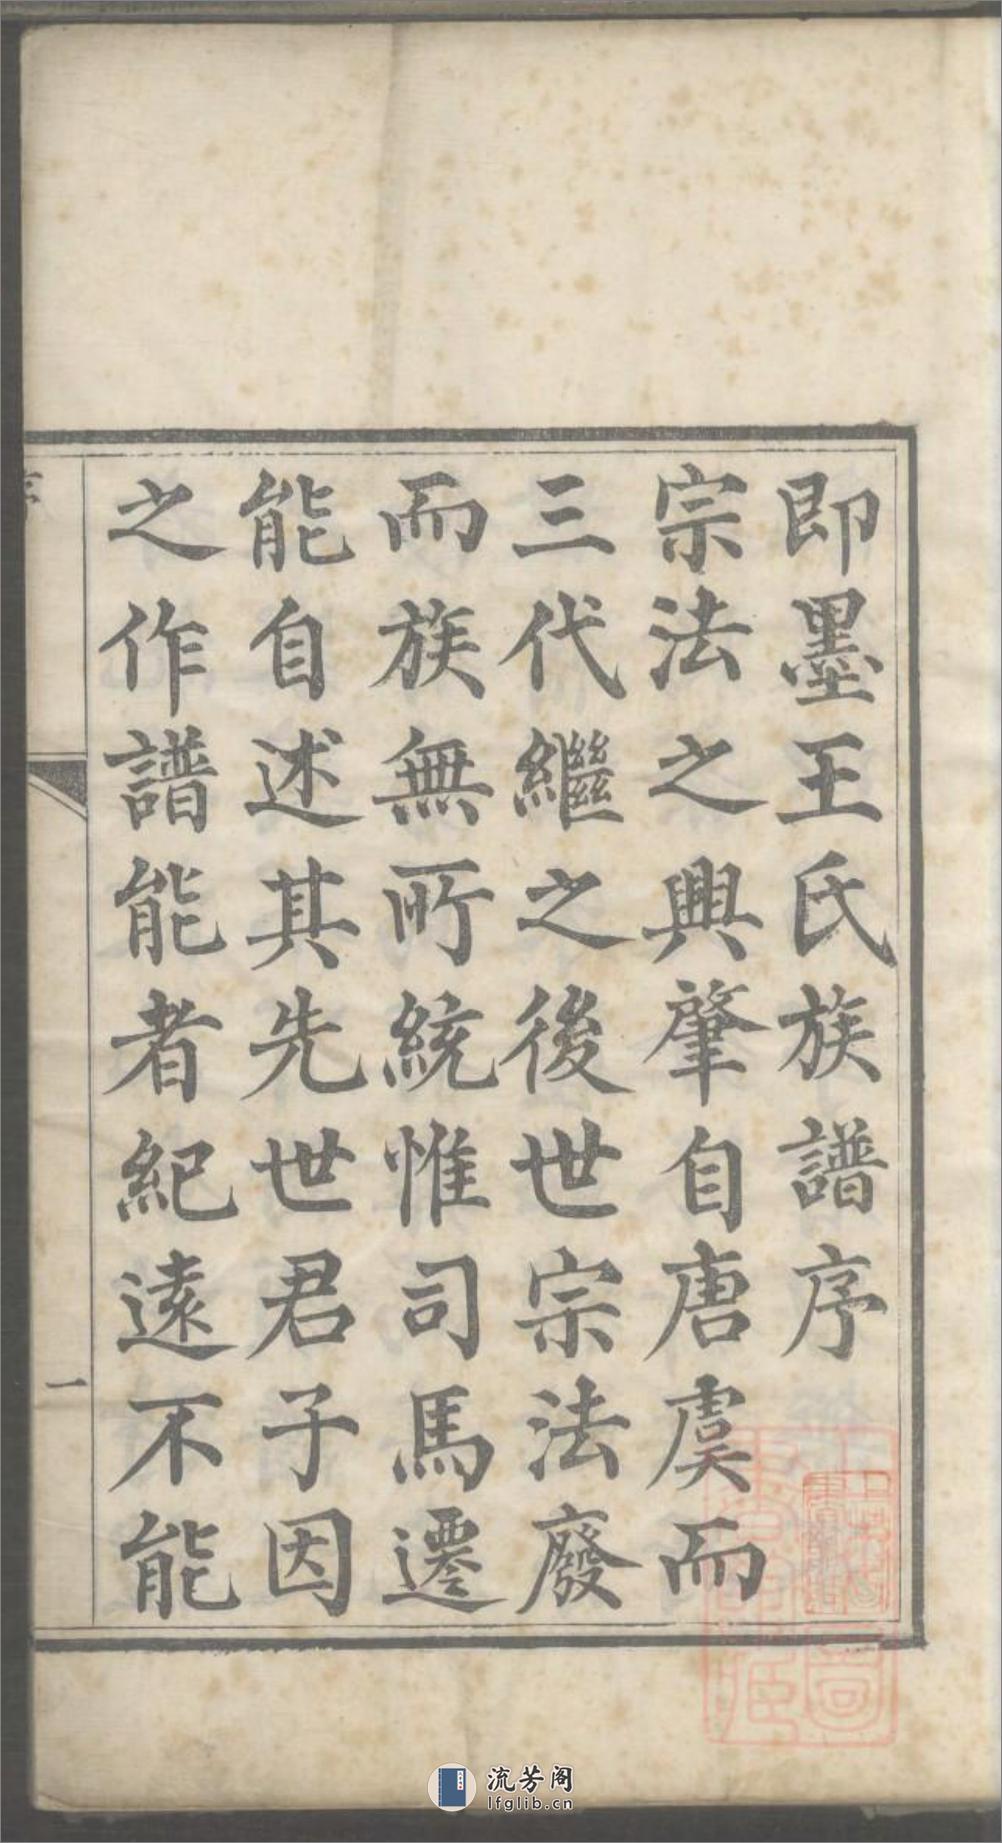 即墨王氏族譜序
宗法之興肇自唐虞而
三代繼之後世宗法廢
而族無所統惟司馬遷
能自述其先世君子因
之作譜能者紀遠不能
一
流芳阁
lfglib.cn